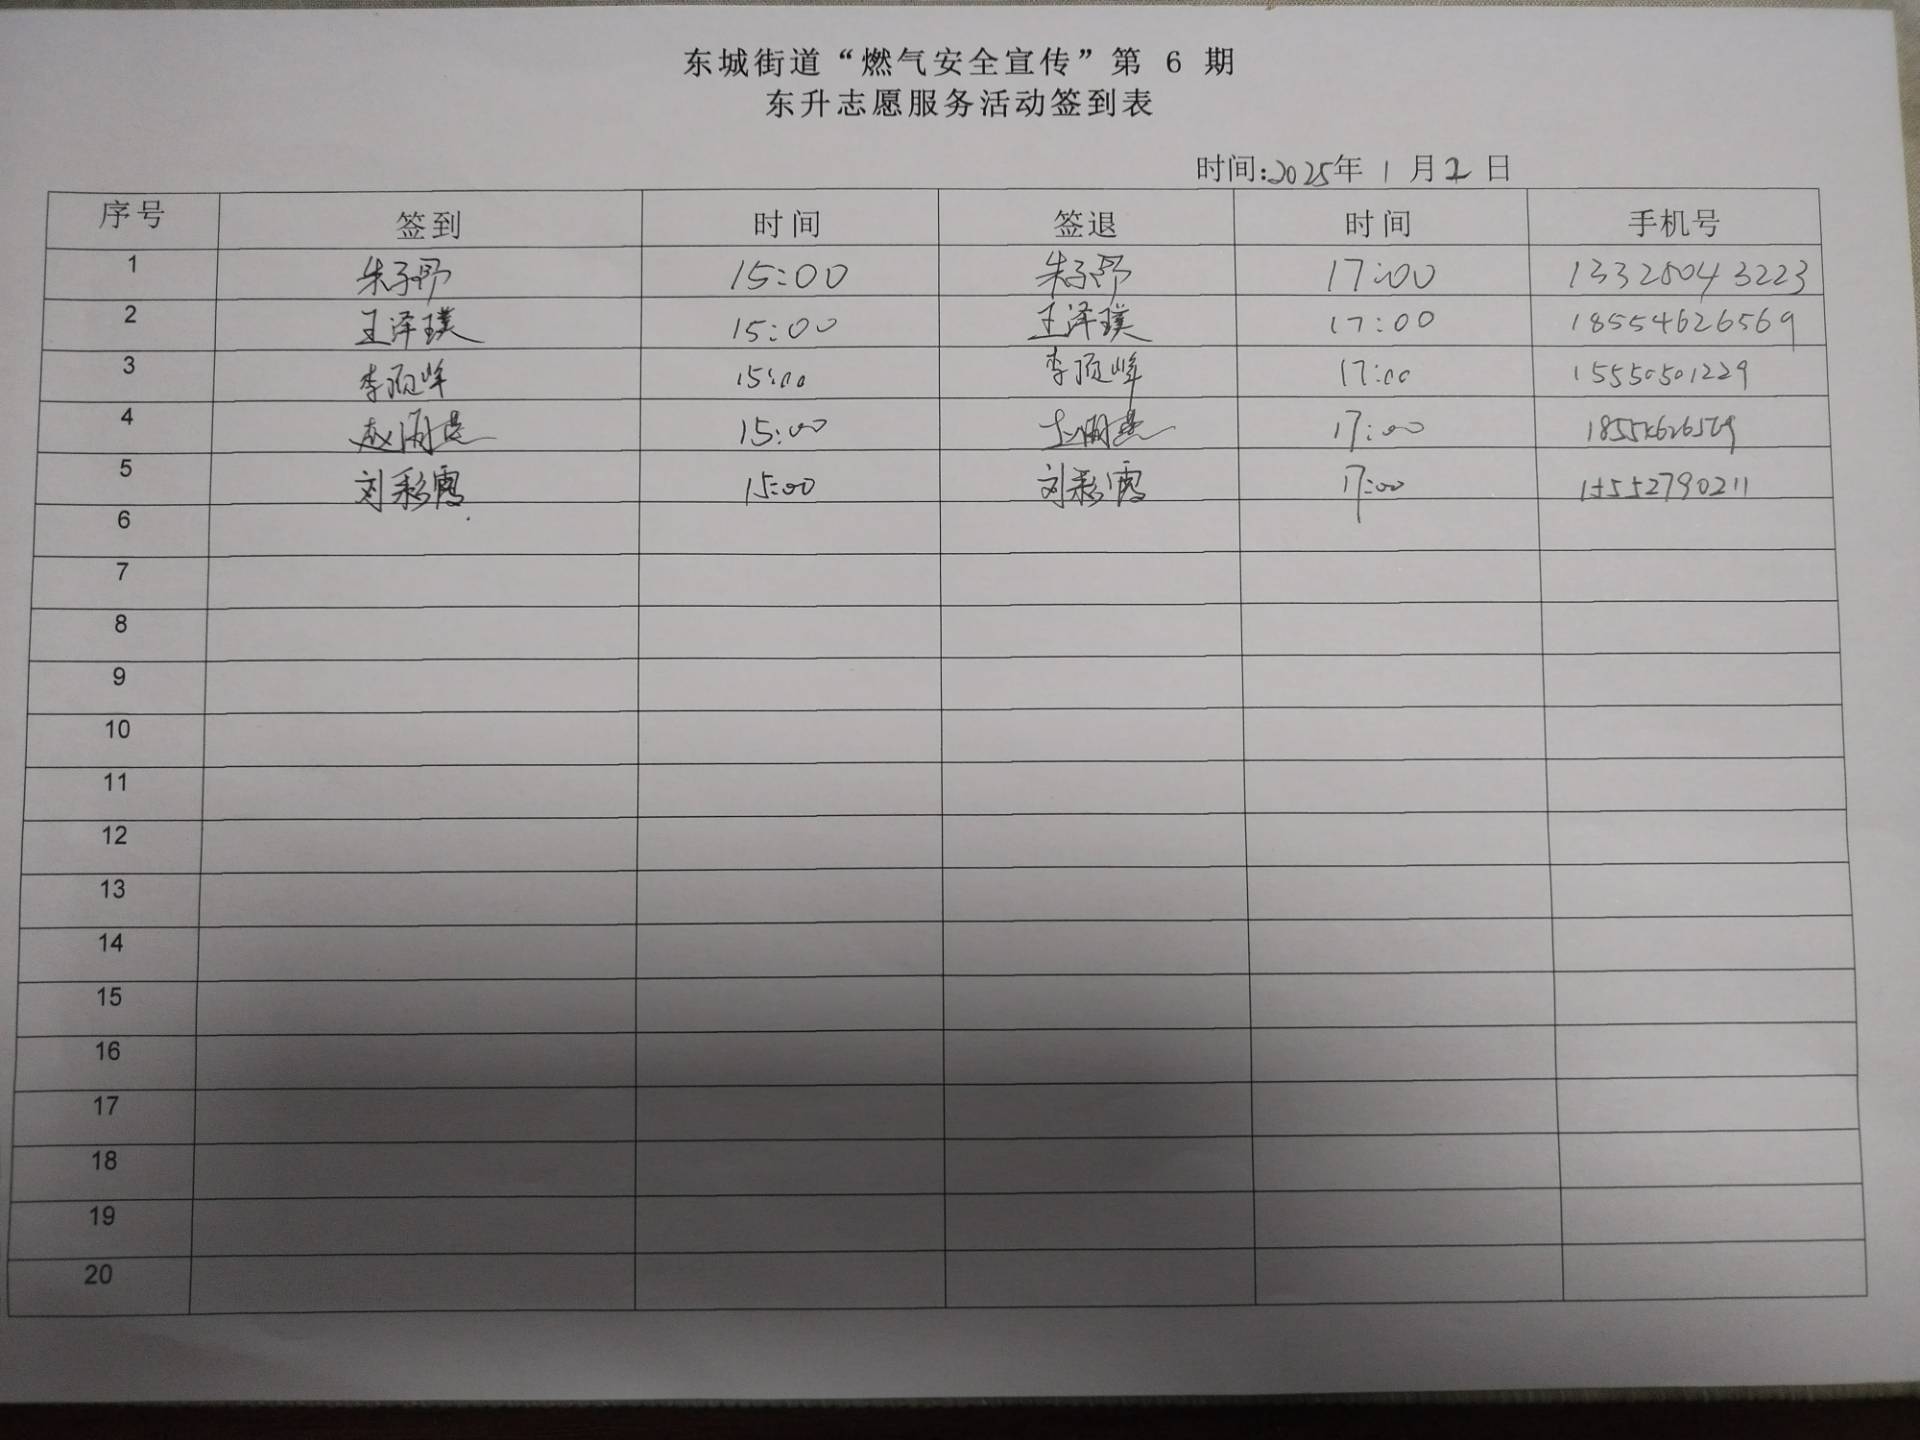 东城街道“燃气安全宣传”第 6 期
东升志愿服务活动签到表
时间:2025年 1 月 2 日
序号 签到 时间 签退 时间 手机号
1 朱子 15:00 朱子 17:00 13328043223
2 王泽璞 15:00 王泽璞 17:00 18554626569
3 李顶峰 15:00 李顶峰 17:00 15550501229
4 赵 15:00 17:00
5 刘彩霞 15:00 刘彩霞 17:00 15552790211
6
7
8
9
10
11
12
13
14
15
16
17
18
19
20